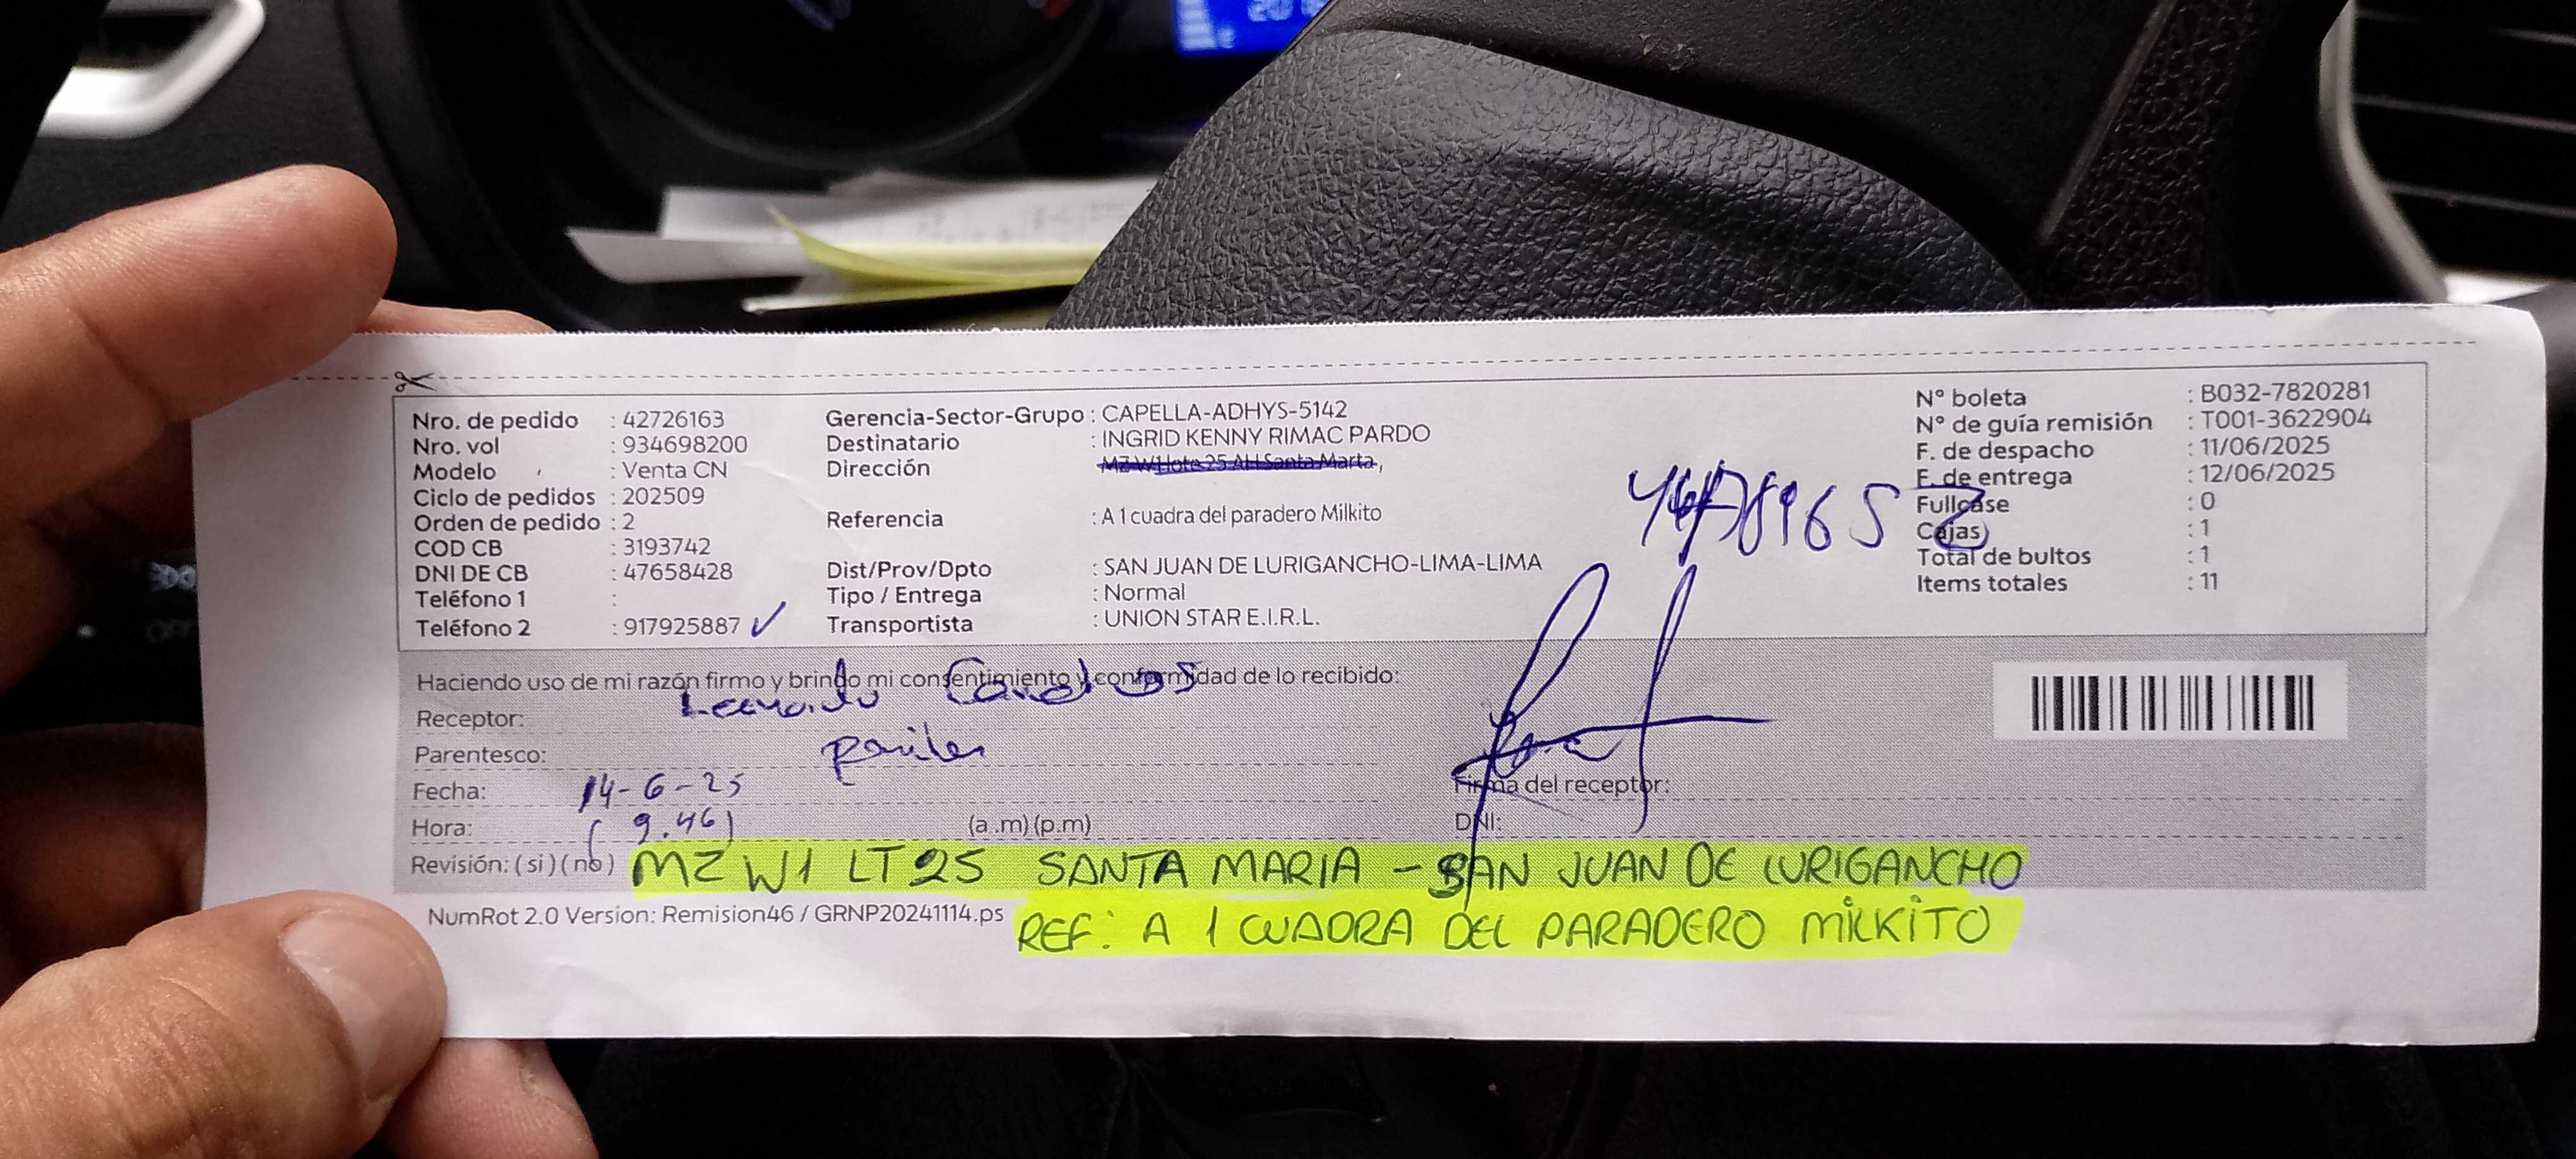 Nro. de pedido : 42726163
Nro. vol : 934698200
Modelo : Venta CN
Ciclo de pedidos : 202509
Orden de pedido : 2
COD CB : 3193742
DNI DE CB : 47658428
Teléfono 1 :
Teléfono 2 : 917925887 ✓
Gerencia-Sector-Grupo : CAPELLA-ADHYS-5142
Destinatario : INGRID KENNY RIMAC PARDO
Dirección : MZ W1 lote 25 AH Santa Marta,
Referencia : A 1 cuadra del paradero Milkito
Dist/Prov/Dpto : SAN JUAN DE LURIGANCHO-LIMA-LIMA
Tipo / Entrega : Normal
Transportista : UNION STAR E.I.R.L.
N° boleta : B032-7820281
N° de guía remisión : T001-3622904
F. de despacho : 11/06/2025
F. de entrega : 12/06/2025
Fullcase : 0
Cajas : 1
Total de bultos : 1
Items totales : 11
Haciendo uso de mi razón firmo y brindo mi consentimiento y conformidad de lo recibido:
Receptor:
Parentesco:
Fecha: 14-6-25
Hora: (9.46) (a.m) (p.m)
Firma del receptor:
DNI:
Revisión: (si) (no) MZ W1 LT 25 SANTA MARIA - SAN JUAN DE LURIGANCHO
NumRot 2.0 Version: Remision46 / GRNP20241114.ps
REF: A 1 CUADRA DEL PARADERO MILKITO